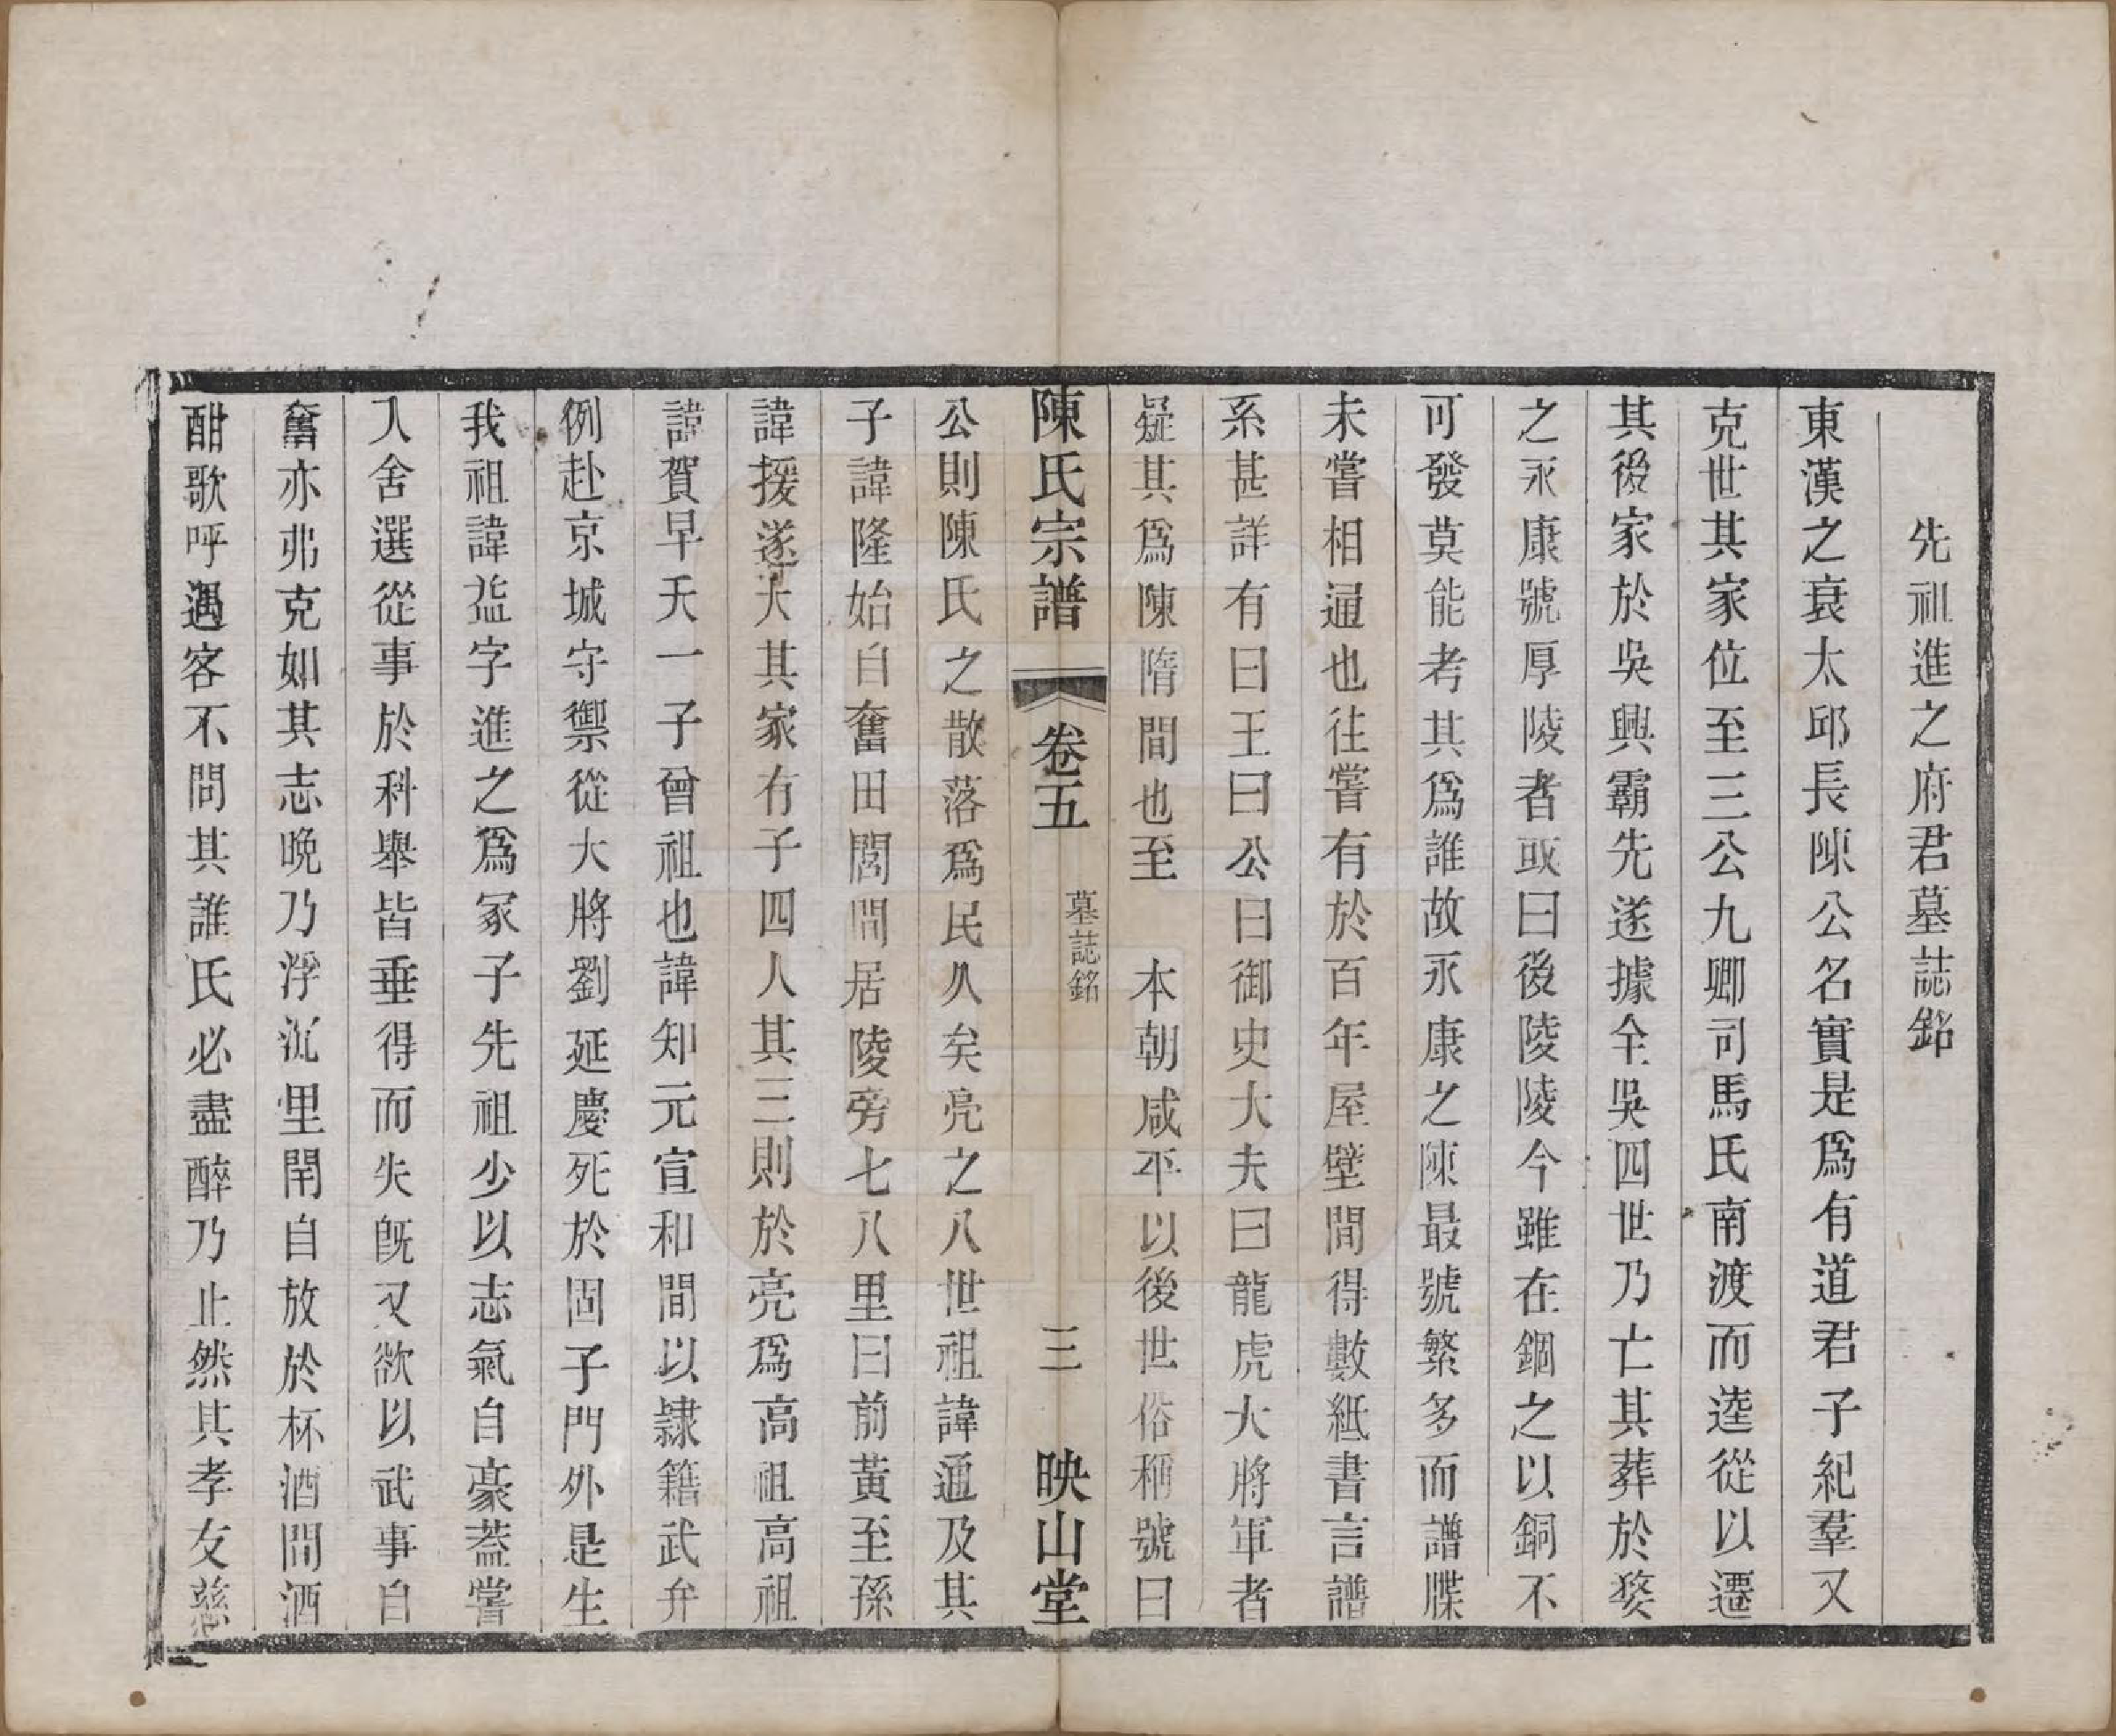 先祖進之府君墓誌銘
東漢之衰太邱長陳公名實是爲有道君子紀羣又
克世其家位至三公九卿司馬氏南渡而逵從以遷
其後家於吳興霸先遂據全吳四世乃亡其葬於婺
之永康號厚陵者或曰後陵陵今雖在錮之以銅不
可發莫能考其爲誰故永康之陳最號繁多而譜牒
未嘗相通也往嘗有於百年屋壁間得數紙書言譜
系甚詳有曰王曰公曰御史大夫曰龍虎大將軍者
疑其爲陳隋間也至　本朝咸平以後世俗稱號曰
陳氏宗譜　卷五　墓誌銘　三　映山堂
公則陳氏之散落爲民久矣亮之八世祖諱通及其
子諱隆始自奮田閭間居陵旁七八里曰前黃至孫
諱援遂大其家有子四人其三則於亮爲高祖高祖
諱賀早夭一子曾祖也諱知元宣和間以隷籍武弁
例赴京城守禦從大將劉延慶死於固子門外是生
我祖諱益字進之爲冢子先祖少以志氣自豪蓋嘗
入舍選從事於科舉皆垂得而失旣又欲以武事自
奮亦弗克如其志晚乃浮沉里閈自放於杯酒間酒
酣歌呼遇客不問其誰氏必盡醉乃止然其孝友慈